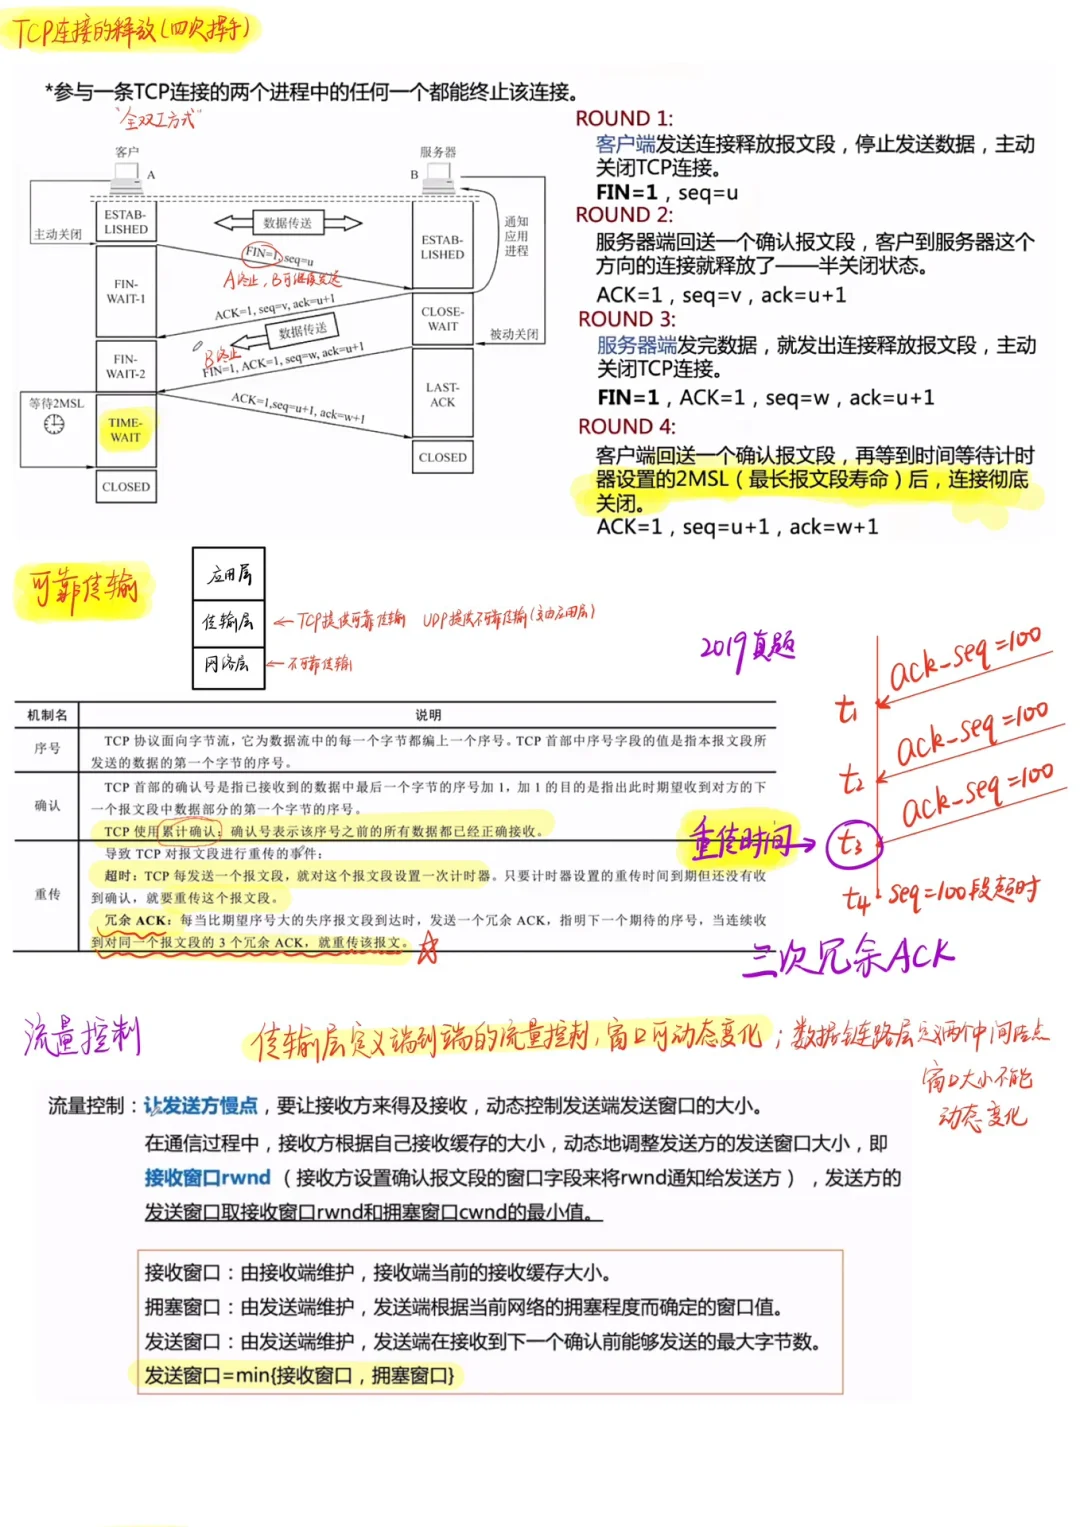 TCP连接的释放(四次挥手)
*参与一条TCP连接的两个进程中的任何一个都能终止该连接。
"全双工方式"
客户
A
服务器
B
主动关闭
ESTAB-
LISHED
数据传送
ESTAB-
LISHED
通知
应用
进程
FIN=1, seq=u
A终止, B可继续发送
FIN-
WAIT-1
ACK=1, seq=v, ack=u+1
CLOSE-
WAIT
被动关闭
数据传送
B终止
FIN=1, ACK=1, seq=w, ack=u+1
FIN-
WAIT-2
LAST-
ACK
等待2MSL
ACK=1,seq=u+1, ack=w+1
TIME-
WAIT
CLOSED
CLOSED
ROUND 1:
客户端发送连接释放报文段，停止发送数据，主动
关闭TCP连接。
FIN=1，seq=u
ROUND 2:
服务器端回送一个确认报文段，客户到服务器这个
方向的连接就释放了——半关闭状态。
ACK=1，seq=v，ack=u+1
ROUND 3:
服务器端发完数据，就发出连接释放报文段，主动
关闭TCP连接。
FIN=1，ACK=1，seq=w，ack=u+1
ROUND 4:
客户端回送一个确认报文段，再等到时间等待计时
器设置的2MSL（最长报文段寿命）后，连接彻底
关闭。
ACK=1，seq=u+1，ack=w+1
可靠传输
应用层
传输层
网络层
←TCP提供可靠传输 UDP提供不可靠传输(交由应用层)
←不可靠传输
机制名 说明
序号
TCP 协议面向字节流，它为数据流中的每一个字节都编上一个序号。TCP 首部中序号字段的值是指本报文段所
发送的数据的第一个字节的序号。
确认
TCP 首部的确认号是指已接收到的数据中最后一个字节的序号加 1，加 1 的目的是指出此时期望收到对方的下
一个报文段中数据部分的第一个字节的序号。
TCP 使用累计确认：确认号表示该序号之前的所有数据都已经正确接收。
重传
导致 TCP 对报文段进行重传的事件：
超时：TCP 每发送一个报文段，就对这个报文段设置一次计时器。只要计时器设置的重传时间到期但还没有收
到确认，就要重传这个报文段。
冗余 ACK：每当比期望序号大的失序报文段到达时，发送一个冗余 ACK，指明下一个期待的序号，当连续收
到对同一个报文段的 3 个冗余 ACK，就重传该报文。
2019真题
ack_seq=100
t1
ack_seq=100
t2
ack_seq=100
重传时间→ t3
t4 seq=100段超时
三次冗余ACK
流量控制
传输层定义端到端的流量控制, 窗口可动态变化；数据链路层定义两个中间结点
窗口大小不能
动态变化
流量控制：让发送方慢点，要让接收方来得及接收，动态控制发送端发送窗口的大小。
在通信过程中，接收方根据自己接收缓存的大小，动态地调整发送方的发送窗口大小，即
接收窗口rwnd（接收方设置确认报文段的窗口字段来将rwnd通知给发送方），发送方的
发送窗口取接收窗口rwnd和拥塞窗口cwnd的最小值。
接收窗口：由接收端维护，接收端当前的接收缓存大小。
拥塞窗口：由发送端维护，发送端根据当前网络的拥塞程度而确定的窗口值。
发送窗口：由发送端维护，发送端在接收到下一个确认前能够发送的最大字节数。
发送窗口=min{接收窗口，拥塞窗口}